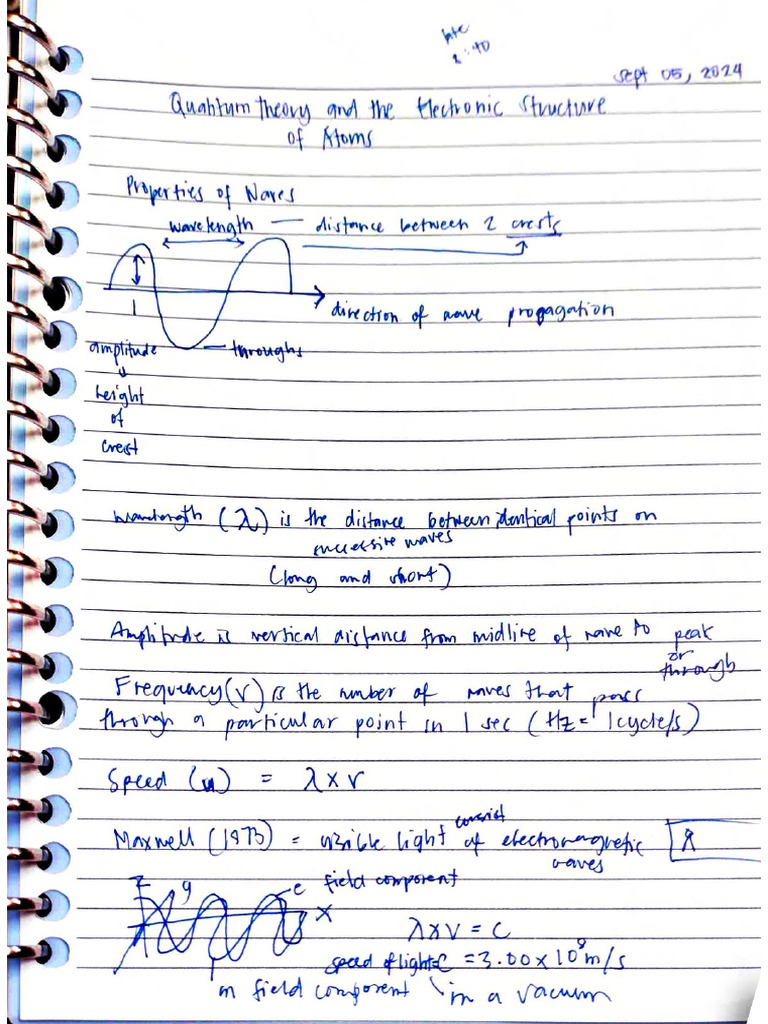 late
2:40
Sept 05, 2024
Quantum Theory and the Electronic Structure
of Atoms
Properties of Waves
wavelength — distance between 2 crests
direction of wave propagation
amplitude — throughs
height
of
crest
wavelength (λ) is the distance between identical points on
successive waves
(long and short)
Amplitude is vertical distance from midline of wave to peak
or
through
Frequency (v) is the number of waves that pass
through a particular point in 1 sec (Hz = 1 cycle/s)
Speed (u) = λ x v
Maxwell (1873) = visible light consist of electromagnetic
waves
z y e field component
x
λ x v = C
speed of light = C = 3.00 x 10⁸ m/s
m field component in a vacuum